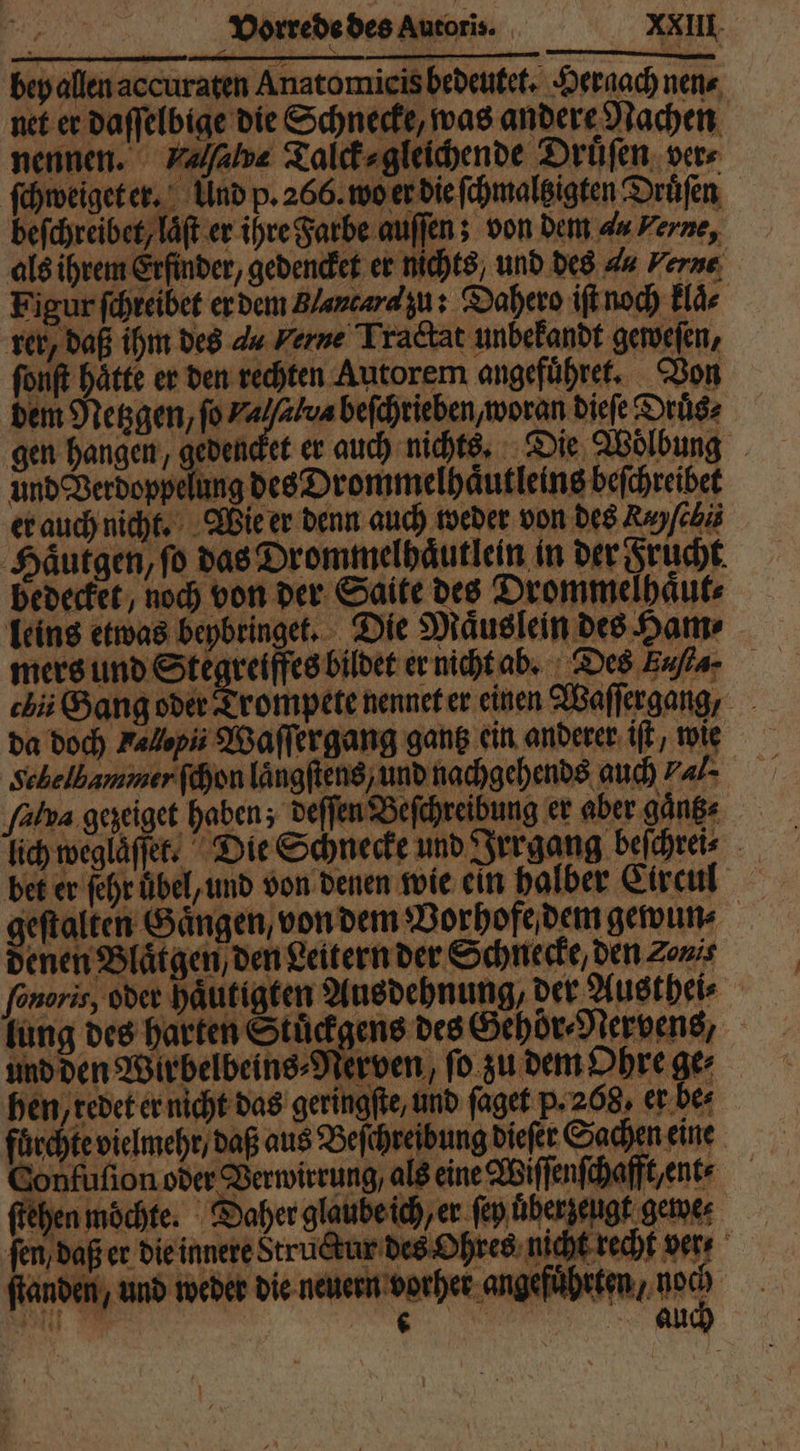 Vorrede des Autoris. XXIII
bey allen accuraten Anatomicis bedeutet. Hernach nen⸗
net er daſſelbige die Schnecke, was andere Nachen
nennen. Valſalvæ Talck⸗gleichende Druͤſen ver⸗
ſchweiget er. Und p. 266. wo er die ſchmaltzigten Druͤſen
beſchreibet, laͤſt er ihre Farbe auſſen; von dem du Verne,
als ihrem Erfinder, gedencket er nichts, und des du Verne
Figur ſchreibet er dem Blancard zu: Dahero iſt noch klaͤ⸗
rer, daß ihm des du Verne Tractat unbekandt geweſen,
ſonſt haͤtte er den rechten Autorem angefuͤhret. Von
dem Netzgen, ſo Valſalva beſchrieben, woran dieſe Druͤs⸗
gen hangen, gedencket er auch nichts. Die Woͤlbung
und Verdoppelung des Drommelhaͤutleins beſchreibet
er auch nicht. Wie er denn auch weder von des Ruyſchii
Haͤutgen, ſo das Drommelhaͤutlein in der Frucht
bedecket, noch von der Saite des Drommelhaͤut⸗
leins etwas beybringet. Die Maͤuslein des Ham⸗
mers und Stegreiffes bildet er nicht ab. Des Euſta-
chii Gang oder Trompete nennet er einen Waſſergang,
da doch Fallopii Waſſergang gantz ein anderer iſt, wie
Schelhammer ſchon laͤngſtens, und nachgehends auch Val-
ſalva gezeiget haben; deſſen Beſchreibung er aber gaͤntz⸗
lich weglaͤſſet. Die Schnecke und Irrgang beſchrei⸗
bet er ſehr uͤbel, und von denen wie ein halber Circul
geſtalten Gaͤngen, von dem Vorhofe, dem gewun⸗
denen Blaͤtgen, den Leitern der Schnecke, den Zonis
ſonoris, oder haͤutigten Ausdehnung, der Austhei⸗
lung des harten Stuͤckgens des Gehoͤr⸗Nervens,
und den Wirbelbeins⸗Nerven, ſo zu dem Ohre ge⸗
hen, redet er nicht das geringſte, und ſaget p. 268. er be⸗
fuͤrchte vielmehr, daß aus Beſchreibung dieſer Sachen eine
Confuſion oder Verwirrung, als eine Wiſſenſchafft, ent⸗
ſtehen moͤchte. Daher glaube ich, er ſey uͤberzeugt gewe⸗
ſen, daß er die innere Structur des Ohres nicht recht ver⸗
ſtanden, und weder die neuern vorher angefuͤhrten, noch
c auch